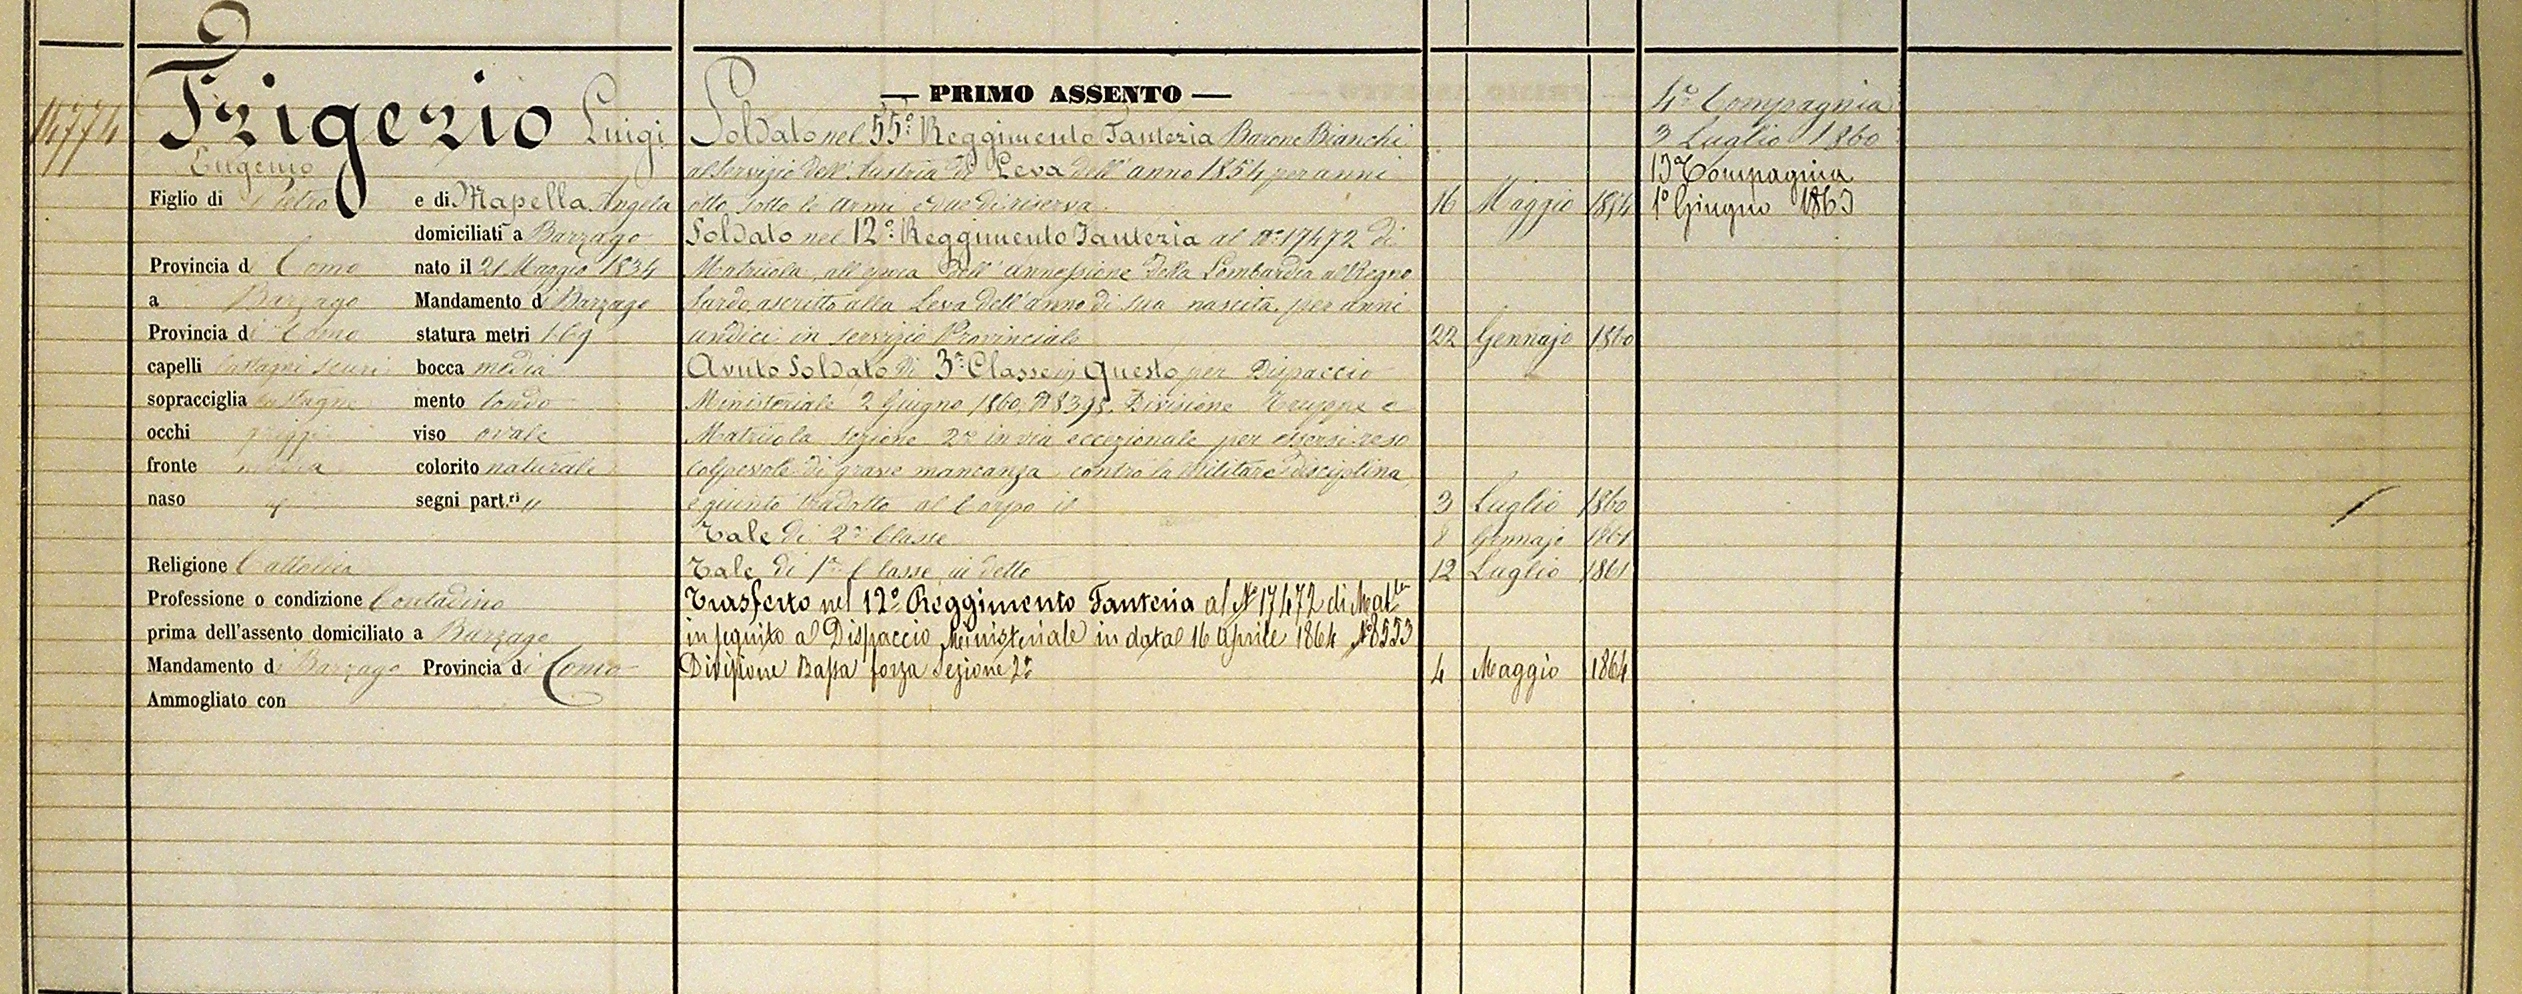 14774
Frigerio Luigi
Eugenio
Figlio di Pietro e di Mapella Angela
domiciliati a Barzago
Provincia di Como nato il 21 Maggio 1834
a Barzago Mandamento di Barzago
Provincia di Como statura metri 1.69
capelli castagni scuri bocca media
sopracciglia castagne mento tondo
occhi griggi viso ovale
fronte media colorito naturale
naso segni part.ri "
Religione Cattolica
Professione o condizione Contadino
prima dell'assento domiciliato a Barzago
Mandamento di Barzago Provincia di Como
Ammogliato con
— PRIMO ASSENTO —
Soldato nel 55° Reggimento Fanteria Barone Bianchi
al servizio dell'Austria di Leva dell'anno 1854 per anni
otto sotto le armi e due di riserva. 16 Maggio 1854
Soldato nel 12° Reggimento Fanteria al N° 17472 di
Matricola, all'epoca dell'annessione della Lombardia al Regno
Sardo, ascritto alla Leva dell'anno di sua nascita, per anni
undici in servizio Provinciale 22 Gennajo 1860
Avuto Soldato di 3a Classe in questo per Dispaccio
Ministeriale 2 Giugno 1860, N° 8398. Divisione Truppe e
Matricola Sezione 2a in via eccezionale per essersi reso
colpevole di grave mancanza contro la Militare disciplina,
e giunto tradotto al Corpo il 3 Luglio 1860
Tale di 2a Classe 8 Gennajo 1861
Tale di 1a Classe in detto 12 Luglio 1861
Trasferto nel 12° Reggimento Fanteria al N° 17472 di Matla
in seguito al Dispaccio Ministeriale in data 16 Aprile 1864 N° 8553
Divisione Bassa forza Sezione 2a 4 Maggio 1864
4a Compagnia
3 Luglio 1860
13a Compagnia
1° Giugno 1863